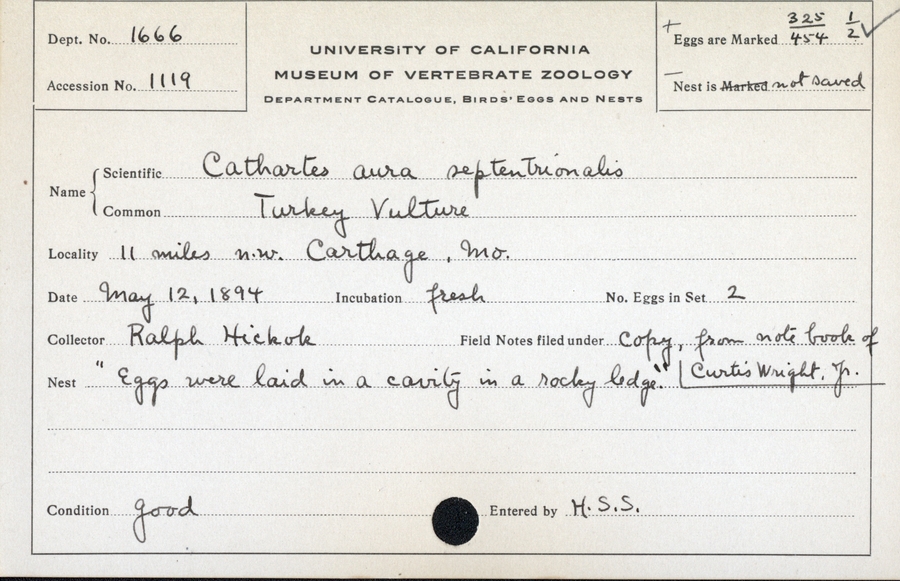 Dept. No. 1666
Accession No. 1119
UNIVERSITY OF CALIFORNIA
MUSEUM OF VERTEBRATE ZOOLOGY
DEPARTMENT CATALOGUE, BIRDS' EGGS AND NESTS
+ Eggs are Marked 325/454 1/2 ✓
— Nest is Marked not saved
Name { Scientific Cathartes aura septentrionalis
Common Turkey Vulture
Locality 11 miles n.w. Carthage, Mo.
Date May 12, 1894 Incubation fresh No. Eggs in Set 2
Collector Ralph Hickok Field Notes filed under copy, from note book of
Nest "Eggs were laid in a cavity in a rocky ledge." Curtis Wright, Jr.
Condition good Entered by H.S.S.